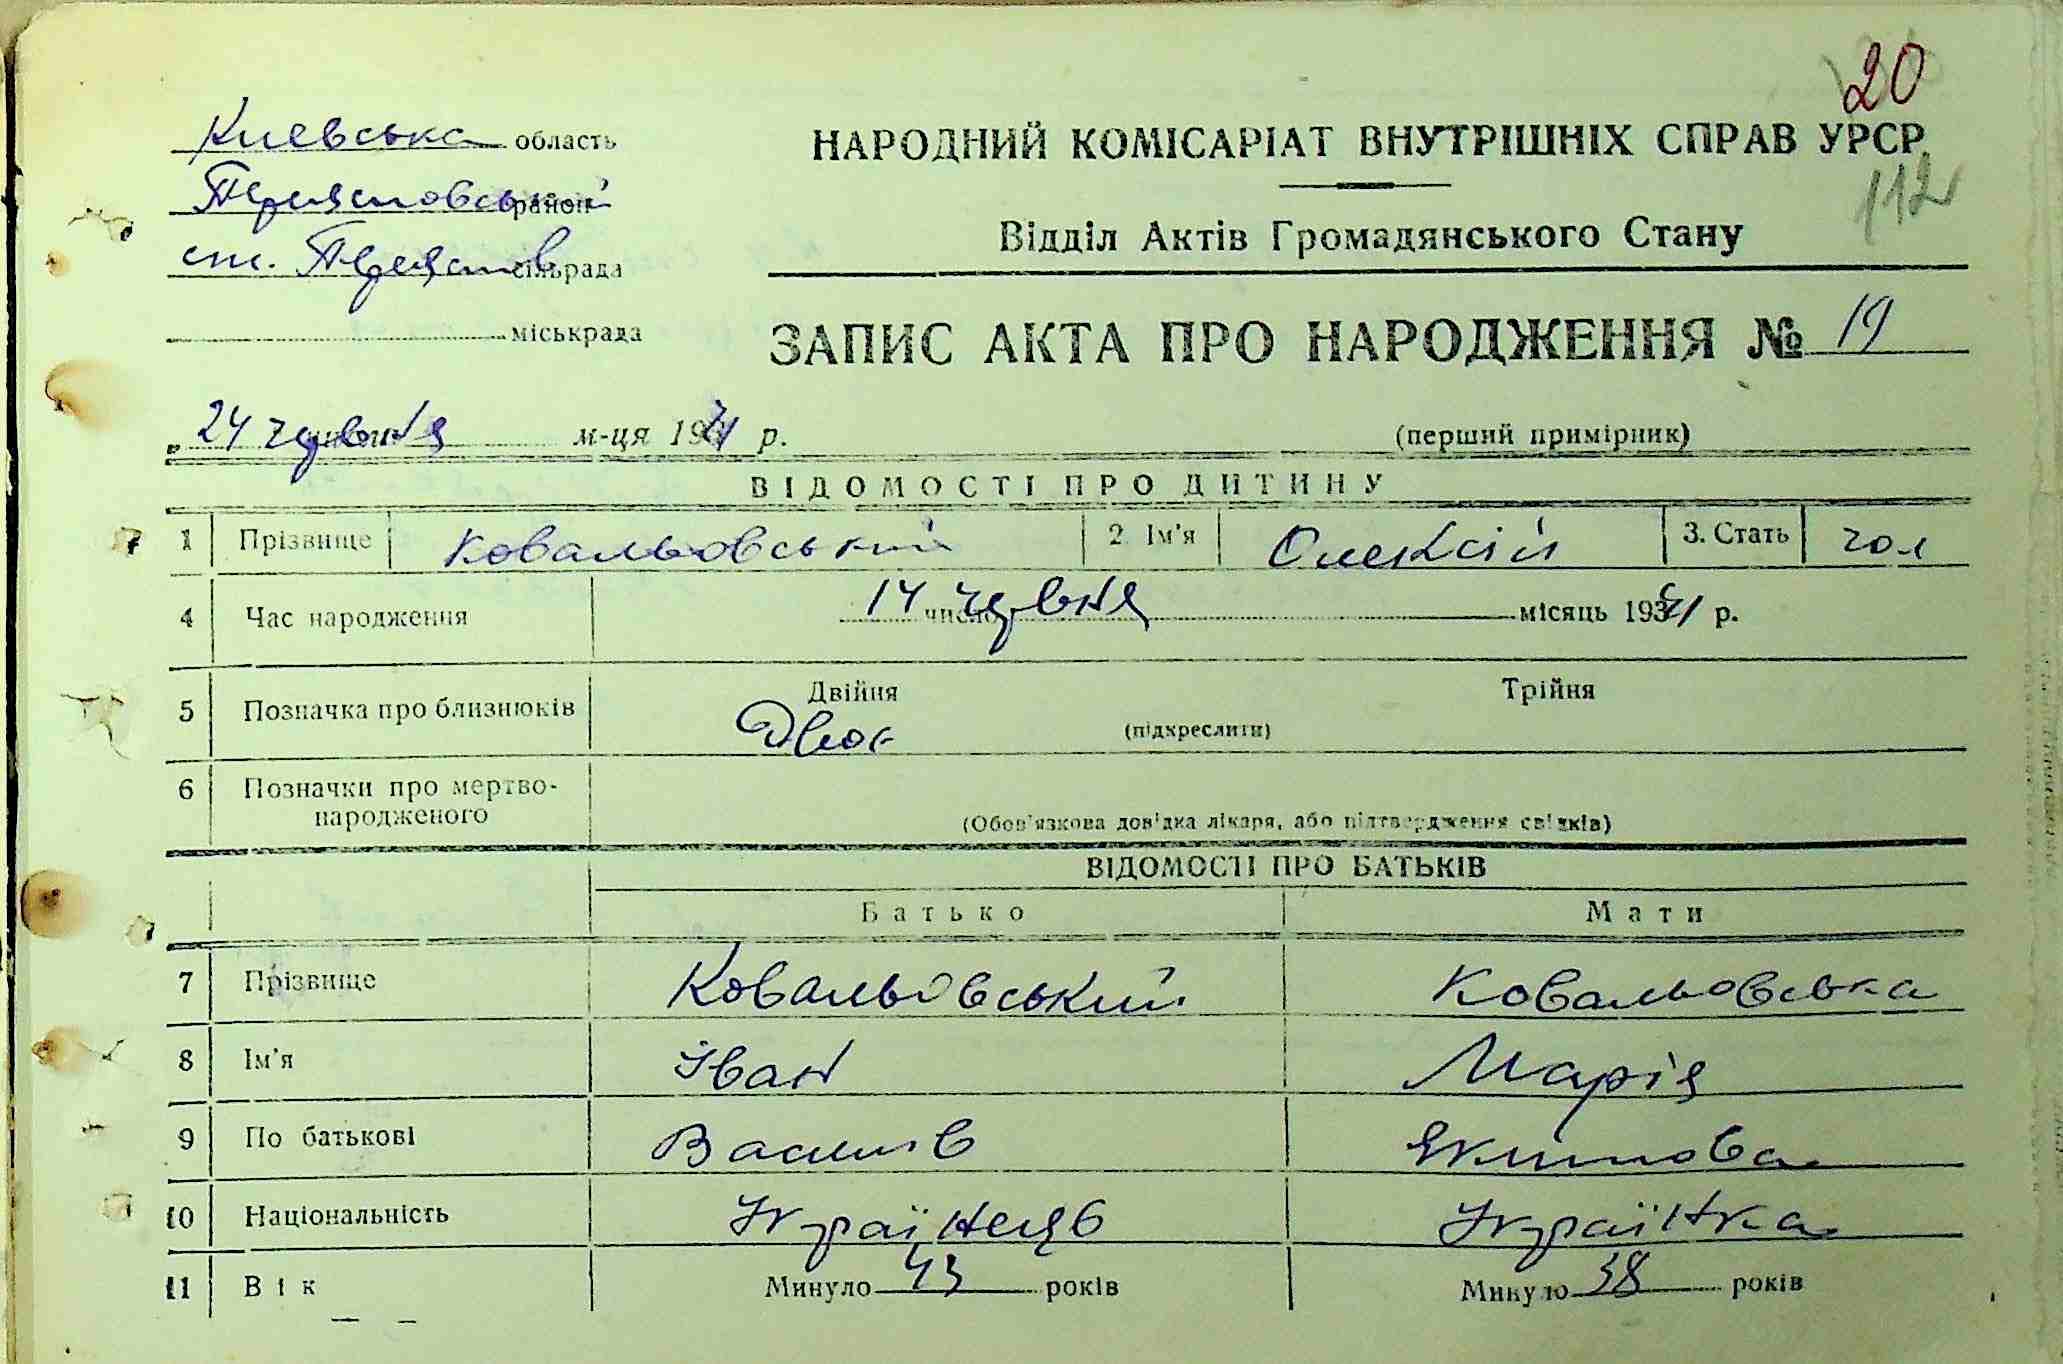 20
Киевська область
НАРОДНИЙ КОМІСАРІАТ ВНУТРІШНІХ СПРАВ УРСР
район
112
Відділ Актів Громадянського Стану
ст. сільрада
міськрада
ЗАПИС АКТА ПРО НАРОДЖЕННЯ № 19
„ 24 червня м-ця 1941 р.
(перший примірник)
ВІДОМОСТІ ПРО ДИТИНУ
1 Прізвище Ковальовський 2. Ім'я Олексій 3. Стать чол
4 Час народження 14 число червня місяць 1941 р.
5 Позначка про близнюків Двійня Трійня
(підкреслити)
6 Позначки про мертво-
народженого
(Обов'язкова довідка лікаря, або підтвердження свідків)
ВІДОМОСТІ ПРО БАТЬКІВ
Батько Мати
7 Прізвище Ковальовський Ковальовська
8 Ім'я Іван Марія
9 По батькові Василів Якимова
10 Національність Українець Українка
11 Вік Минуло 43 років Минуло 38 років